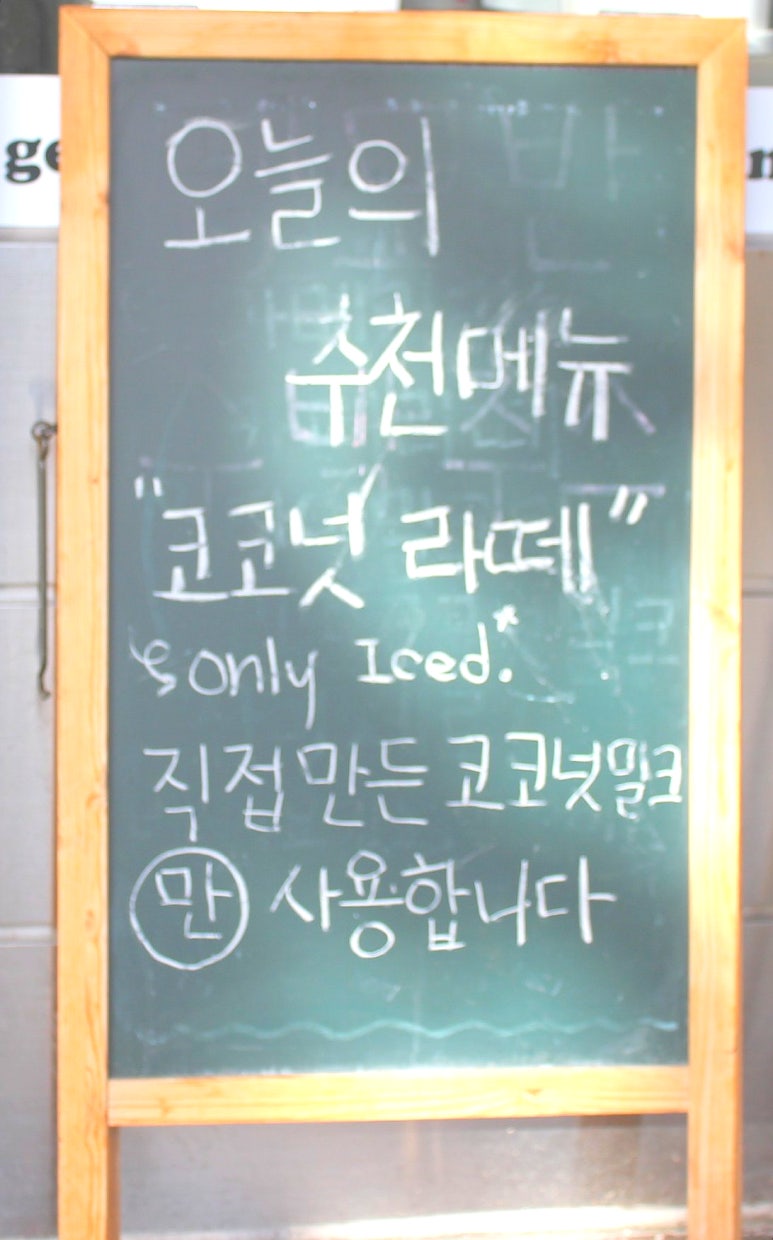 오늘의
추천메뉴
"코코넛 라떼"
only Iced.*
직접만든 코코넛밀크
만 사용합니다
ge